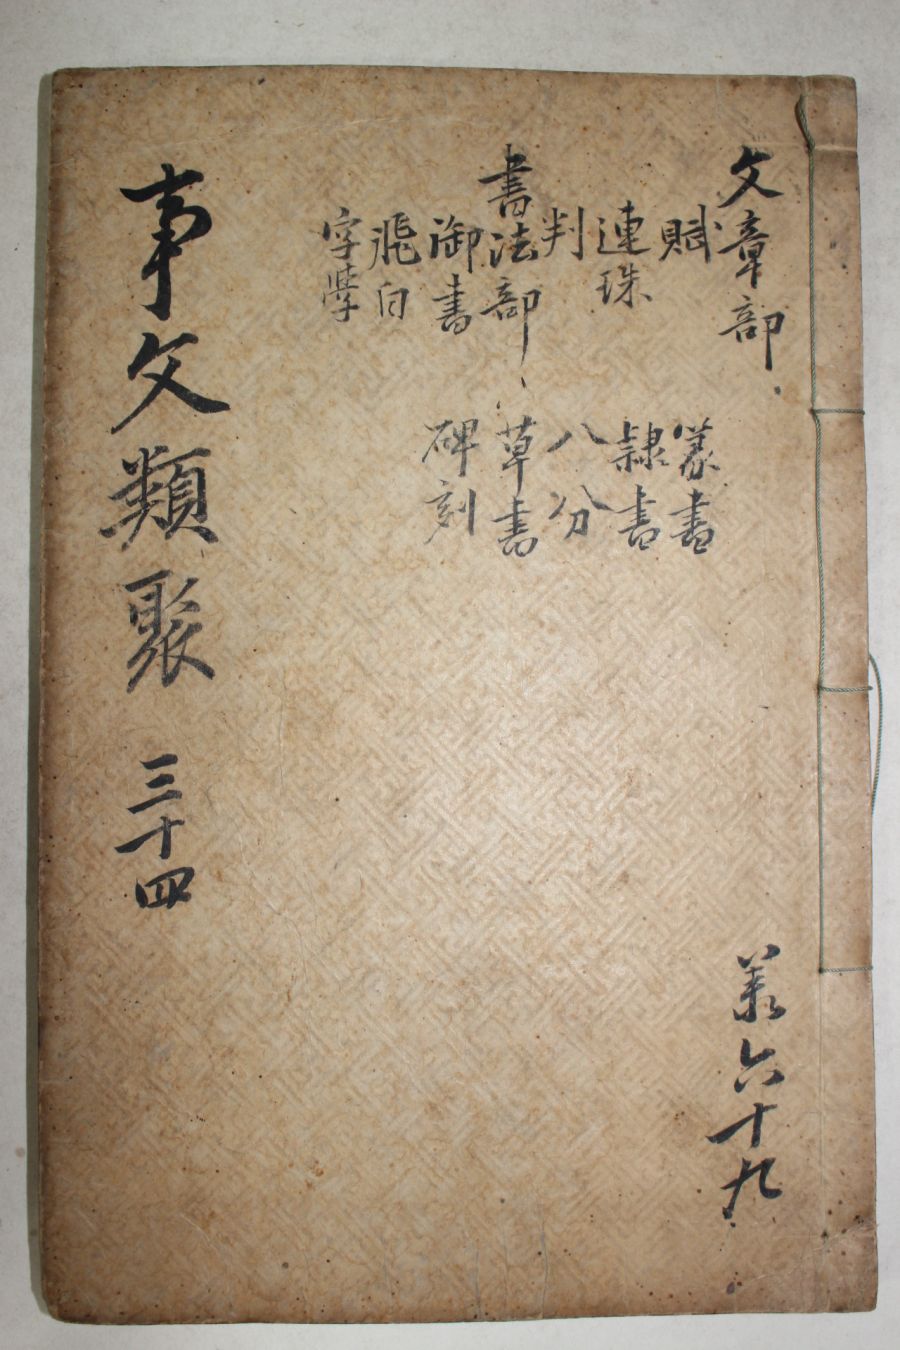 文章部
賦
連珠
判
書法部
御書
飛白
字學
篆書
隷書
八分
草書
碑刻
六十九
事文類聚 三十四